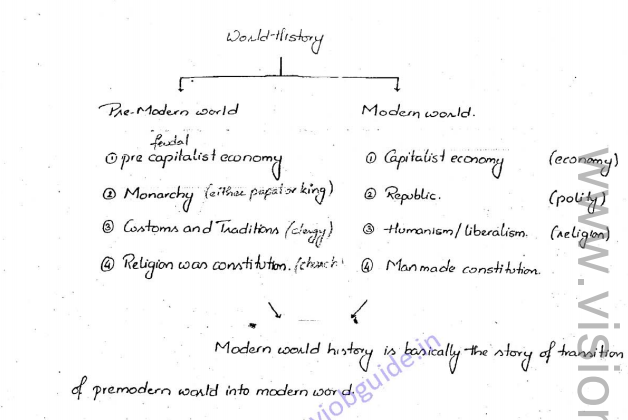 World-History
Pre-Modern world Modern world.
feudal
① pre capitalist economy ① Capitalist economy (economy)
② Monarchy (either papal or king) ② Republic. (polity)
③ Customs and Traditions (clergy) ③ Humanism/liberalism. (religion)
④ Religion was constitution. (church ④ Man made constitution.
Modern world history is basically the story of transition
of premodern world into modern world.
jobguide.in
www.vision